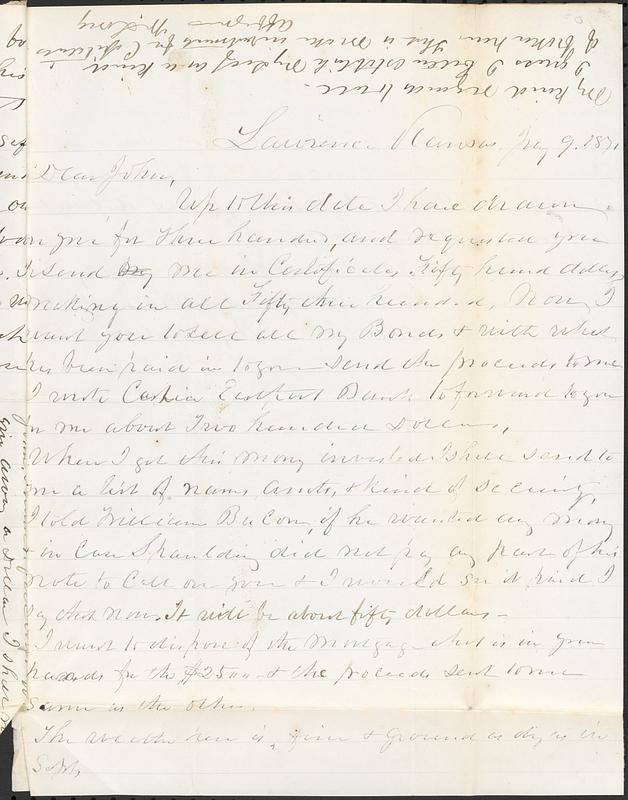 Lawrence Kansas Jany 9. 1871
Dear John,
Up to this date I have drawn
on you for Three hundred, and requested you
to send my me in Certificates Fifty hund dollars
making in all Fifty three hundred, Now I
want you to sell all my Bonds & with what
has been paid in to you send the proceeds to me
I wrote Cashier Eastport Bank to forward to you
for me about Two hundred Dollars,
When I get this money invested I shall send to
me a list of names assets, & kind of security,
I told William Bacon, if he wanted any money
& in case Spaulding did not pay any part of his
note to call on you & I would see it paid I
say that now. It will be about fifty dollars -
I want to dispose of the mortgage that is in your
hands for the $2500 - & the proceeds sent to me
same as the other,
The weather here is fine & ground as dry as in
Sept,
My kind regards to all -
I guess I better establish myself as a kind
of broker here That is make investments for Capitalists
W. Long
give away a dollar I shall